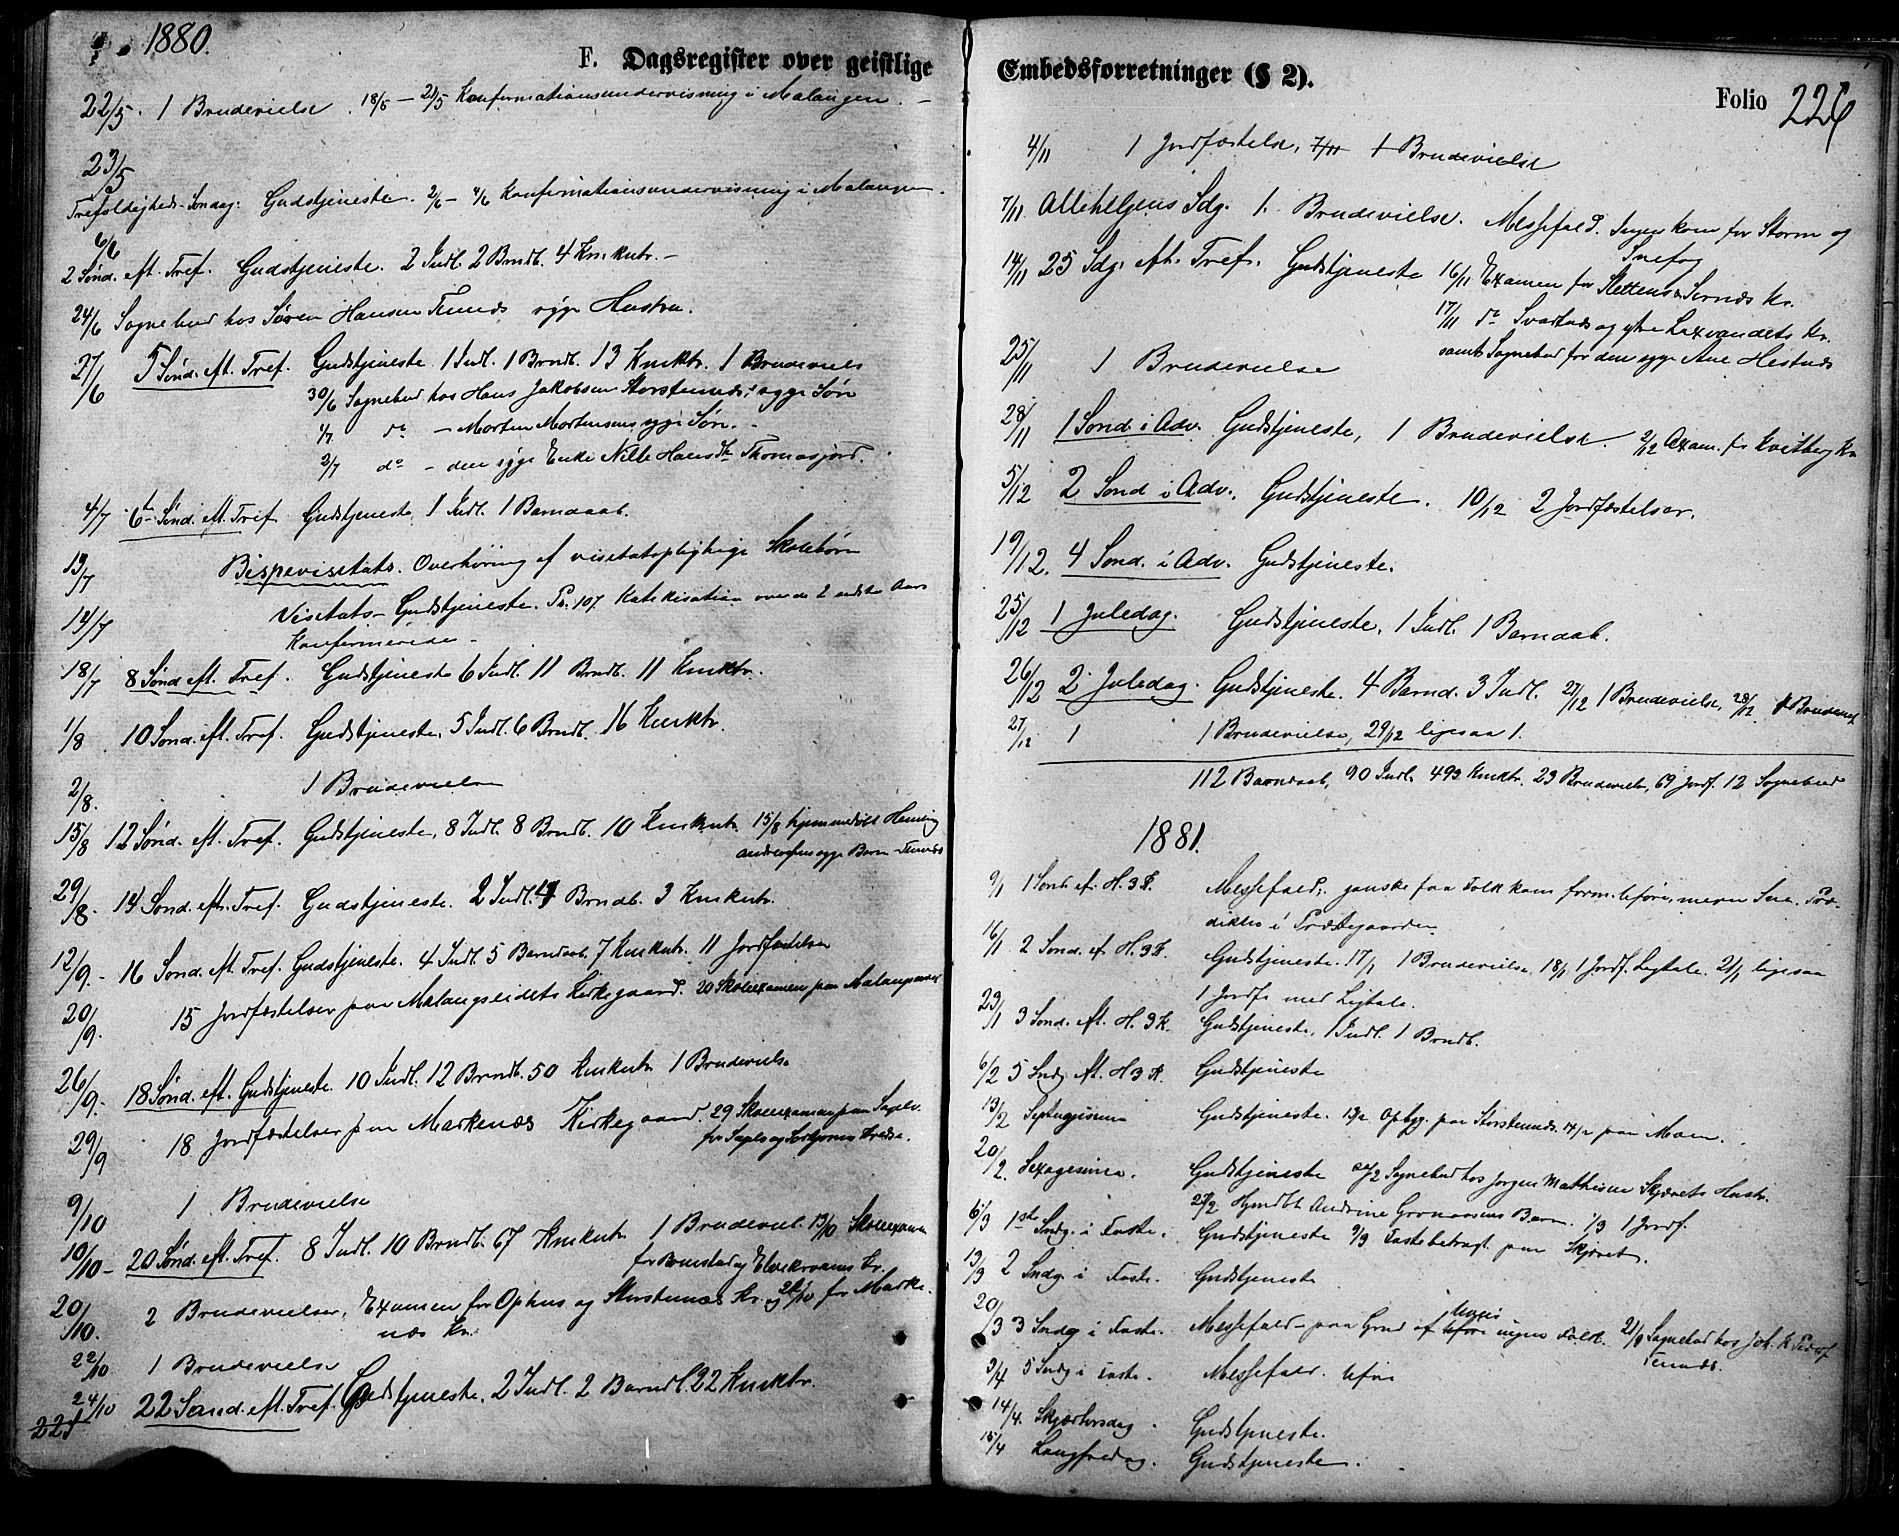 1880.
F. Dagsregister over geistlige
22/5. 1 Brudevielse. 18/5 – 21/5 Konfirmationsundervisning i Malangen. –
23/5
Trefoldigheds-Søndag: Gudstjeneste. 2/6 – 4/6 Konfirmationsundervisning i Malangen.
6/6
2 Sønd. eft. Tref. Gudstjeneste. 2 Indl. 2 Brndb. 4 Kmkntr. –
24/6 Sognebud hos Søren Hansen syge Hustru.
27/6 5 Sønd. eft. Tref. Gudstjeneste 1 Indl. 1 Brndb. 13 Kmktr. 1 Brudeviels
30/6 Sognebud hos Hans Jakobsen Storstennes's syge Søn
1/7 do – Morten Mortensens syge Søn. –
2/7 do – den syge Enke Nille Hans Thomasjord.
4/7 6te Sønd. eft. Tref. Gudstjeneste, 1 Indl. 1 Barndaab.
13/7 Bispevisitats. Overhøring af visitatspligtige Skolebørn
14/7 Visitats-Gudstjeneste. Ps. 107. Katekisation over de 2 sidste Aars
Konfirmerede –
18/7 8 Sønd. eft. Tref. Gudstjeneste 6 Indl. 11 Brndb. 11 Kmktr.
1/8 10 Sønd. eft. Tref. Gudstjeneste, 5 Indl. 6 Brndb. 16 Kmktr.
2/8. 1 Brudevielse
15/8 12 Sønd. eft. Tref. Gudstjeneste, 8 Indl. 8 Brndb. 10 Kmkntr. 15/8 hjemmedöbt Henning
Andreassens syge Barn
29/8. 14 Sønd. eft. Tref. Gudstjeneste. 2 Indl. 4 Brndb. 3 Kmkntr.
12/9. – 16 Sønd. eft. Tref. Gudstjeneste. 4 Indl. 5 Barndaab. 7 Kmkntr. 11 Jordfæstelser
20/9. 15 Jordfæstelser paa Malangseidets Kirkegaard. 20 Skoleexamen paa
26/9. 18 Sønd. eft. Gudstjeneste. 10 Indl. 12 Brndb. 50 Kmkntr 1 Brudevielse
29/9 18 Jordfæstelser paa Markenæs Kirkegaard. 29 Skoleexamen paa
for Kredse.
9/10 1 Brudevielse
10/10 – 20 Sønd. eft. Tref. 8 Indl. 10 Brndb. 67 Kmkntr 1 Brudeviel. 13/10 Skoleexamen
for og Elvekroenes Kr.
20/10. 2 Brudevielser, Examen for Ophus og Storstennæs Kr. og for Marke
næs Kr.
22/10 1 Brudevielse
24/10 22 Sønd. eft. Tref. Gudstjeneste. 2 Indl. 2 Barndb. 22 Kmktr.
225
Embedsforretninger (§ 2).
Folio 226
4/11 1 Jordfæstelse, 7/11 1 Brudevielse
7/11. Allehelgens Sdg. 1. Brudevielse. Messefald. Ingen kom for Storm og
Snefog
14/11 25 Sdg. eft. Tref. Gudstjeneste 16/11 Examen for Slettens & Sernæs Kr.
17/11 do Svartnes og ytre Laxvandets Kr.
samt Sognebud for den syge Ane Hestnæs
25/11 1 Brudevielse
28/11 1 Sønd i Adv. Gudstjeneste, 1 Brudevielse. 2/12 Exam. f. Kvitberg Kr
5/12 2 Sønd i Adv. Gudstjeneste. 10/12 2 Jordfæstelser.
19/12. 4 Sønd. i Adv. Gudstjeneste.
25/12 1 Juledag. Gudstjeneste, 1 Indl. 1 Barndaab.
26/12 2 Juledag. Gudstjeneste. 4 Barnd. 3 Indl. 27/12 1 Brudevielse, 28/12. 1 Brudeviel
27/12 1 1 Brudevielse, 29/12 ligesaa 1.
112 Barndaab, 90 Indl. 493 Kmktr. 23 Brudevielser, 69 Jordf. 12 Sognebud
1881.
9/1 1 Sønd ef. H. 3 K. Messefald, ganske faa Folk kom form. Uföre, megen Sne. Præ-
diken i Præstegaarden
16/1 2 Sønd. ef. H. 3 K. Gudstjeneste. 17/1 1 Brudevielse, 18/1 1 Jordf. Ligtale. 21/1 ligesaa
1 Jordfe med Ligtale.
23/1 3 Sønd. eft. H. 3 K. Gudstjeneste, 1 Indl. 1 Brndb.
6/2 5 Sndg. eft. H 3 K. Gudstjeneste
13/2 Septuagesima Gudstjeneste. 13/2 Opbyg. paa Storstennes. 14/2 paa Moen.
20/2. Sexagesima. Gudstjeneste Sognebud hos Jørgen Mathisen Skjævets Hustr.
27/2 Hjmdbt Andrine Grønaasens Barn. 1/3 1 Jordf.
6/3 1ste Sndg. i Faste. Gudstjeneste 9/3 Fastebetragt. paa Skjævet.
13/3 2 Sndg. i Faste. Gudstjeneste
20/3 3 Sndg i Faste. Messefald paa Grund af Uføre ingen Folk. 21/3 Sognebud hos Joh.
3/4 5 Sndg i Faste. Messefald. Uføre
14/4. Skjærtorsdag. Gudstjeneste.
15/4 Langfredag. Gudstjeneste.